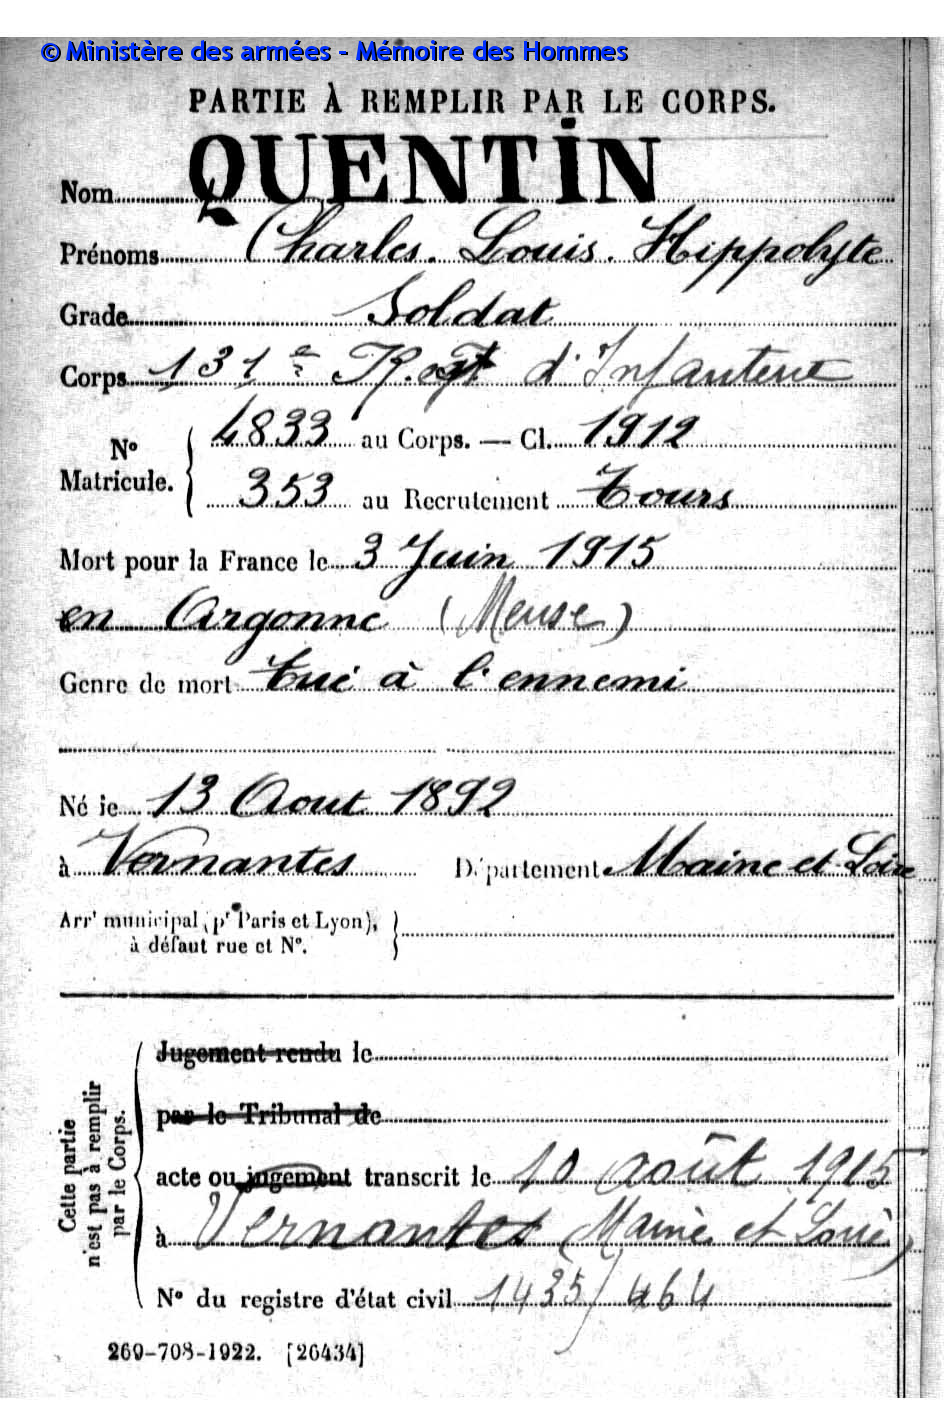 © Ministère des armées - Mémoire des Hommes
PARTIE À REMPLIR PAR LE CORPS.
Nom QUENTIN
Prénoms Charles. Louis. Hippolyte
Grade Soldat
Corps 131e Regt d'Infanterie
No Matricule. 4833 au Corps. — Cl. 1912
353 au Recrutement Tours
Mort pour la France le 3 Juin 1915
en Argonne (Meuse)
Genre de mort Tué à l'ennemi
Né le 13 Aout 1892
à Vernantes Département Maine et Loire
Arrt municipal (pr Paris et Lyon),
à défaut rue et No.
Cette partie
n'est pas à remplir
par le Corps.
Jugement rendu le
par le Tribunal de
acte ou jugement transcrit le 10 août 1915
à Vernantes (Maine et Loire)
No du registre d'état civil 1435/464
269-708-1922. [26434]